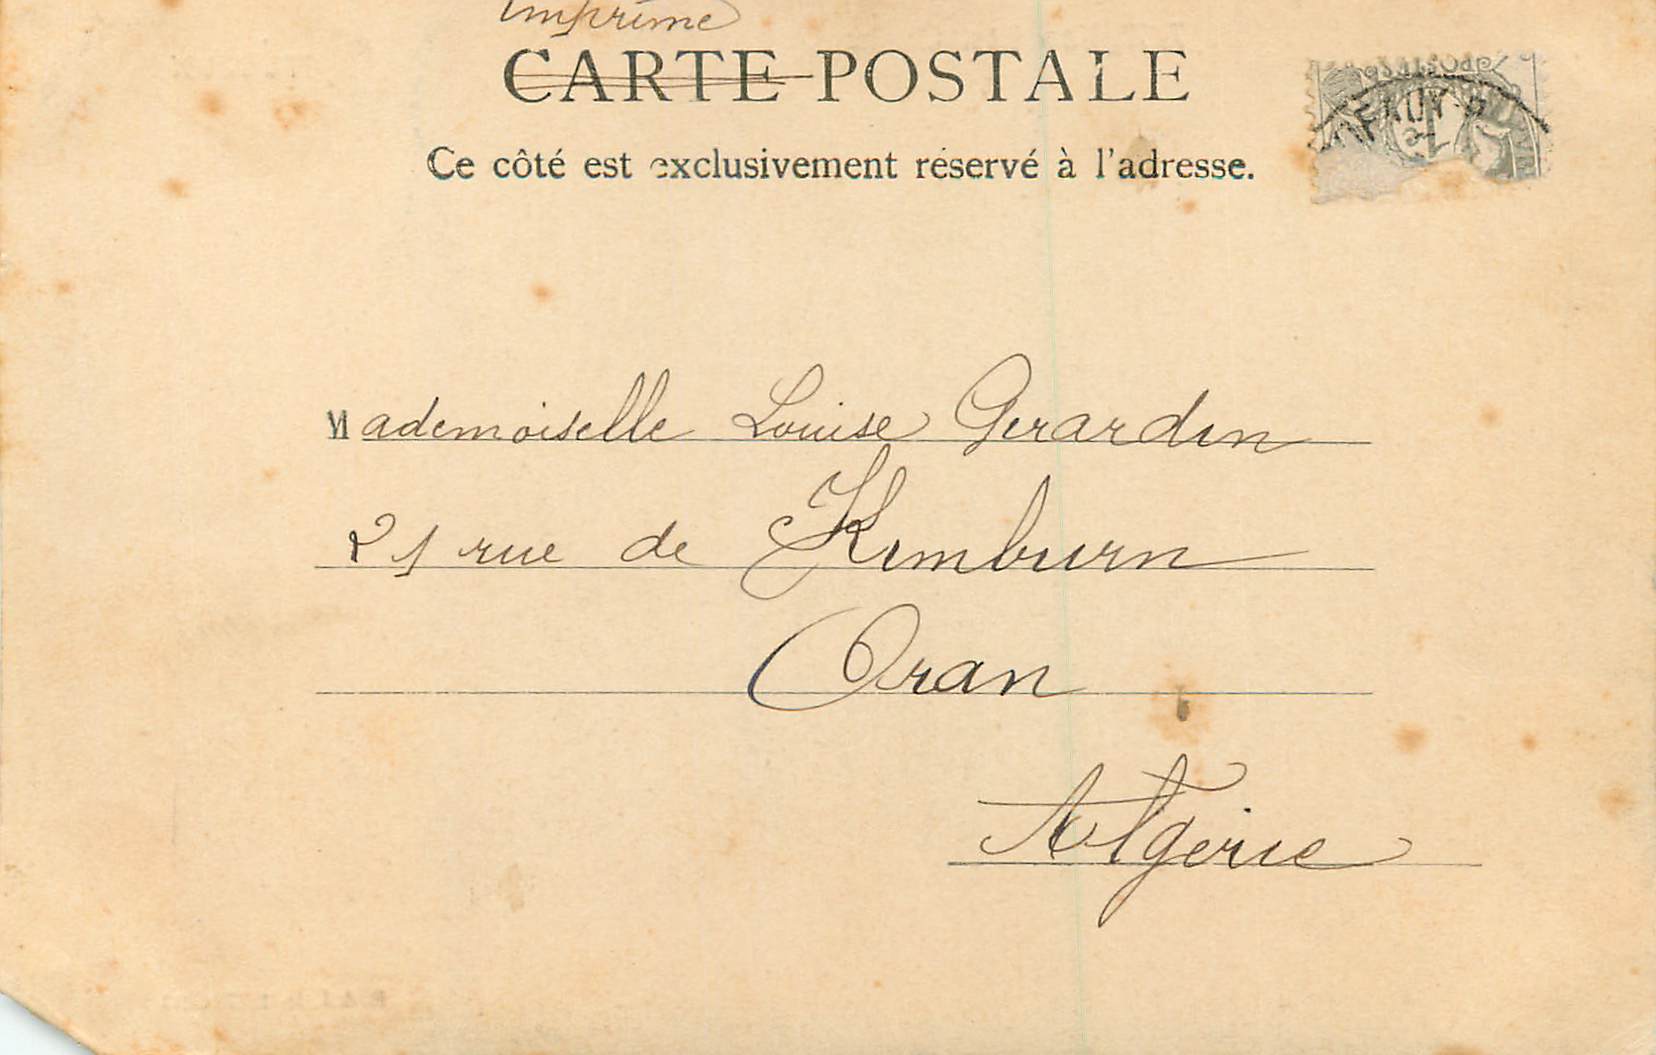 Imprimé
CARTE POSTALE
Ce côté est exclusivement réservé à l'adresse.
Mademoiselle Louise Gerardin
21 rue de Kimburn
Oran
Algérie